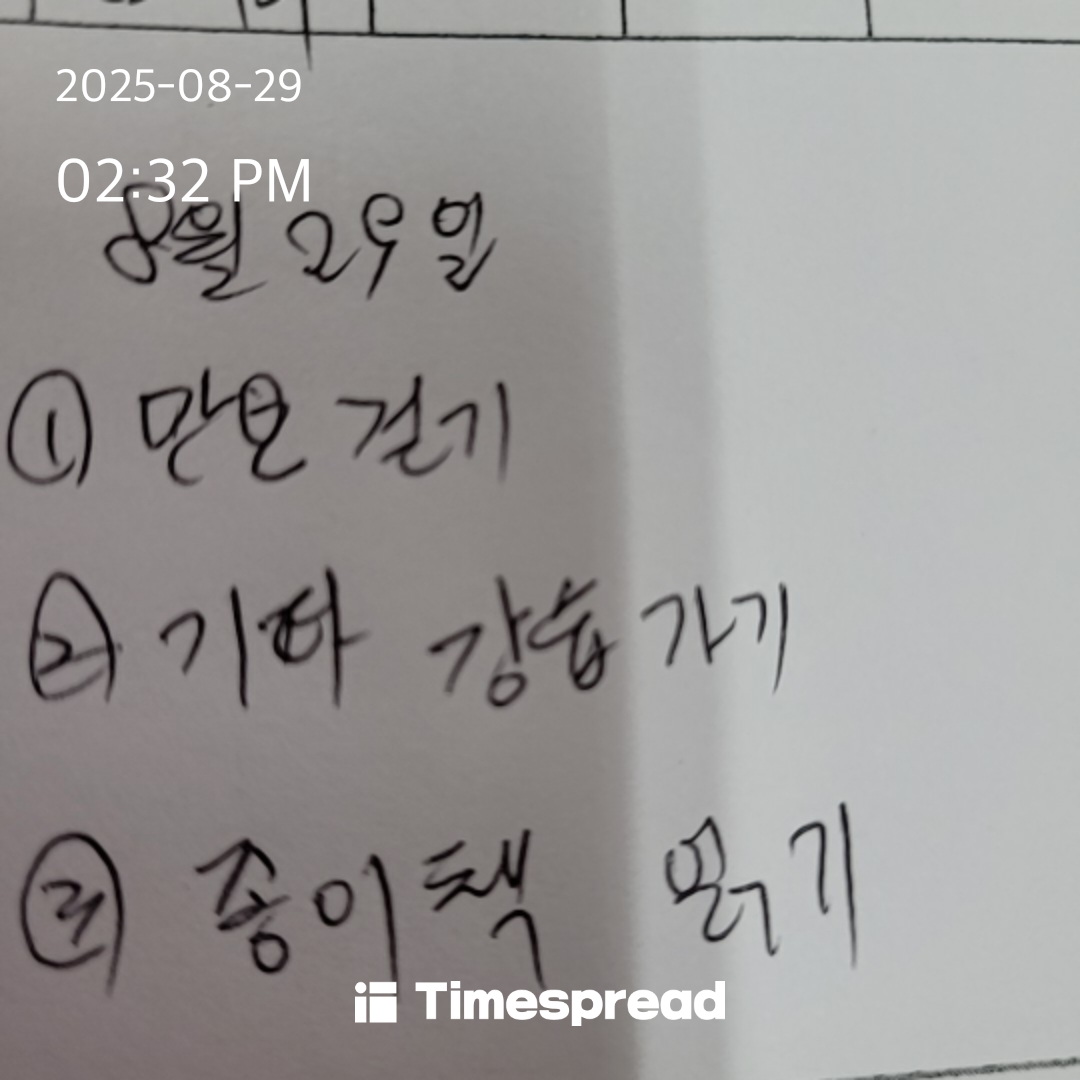 2025-08-29
02:32 PM
8월 29일
① 만보 걷기
② 기타 강습 가기
③ 종이책 읽기
Timespread